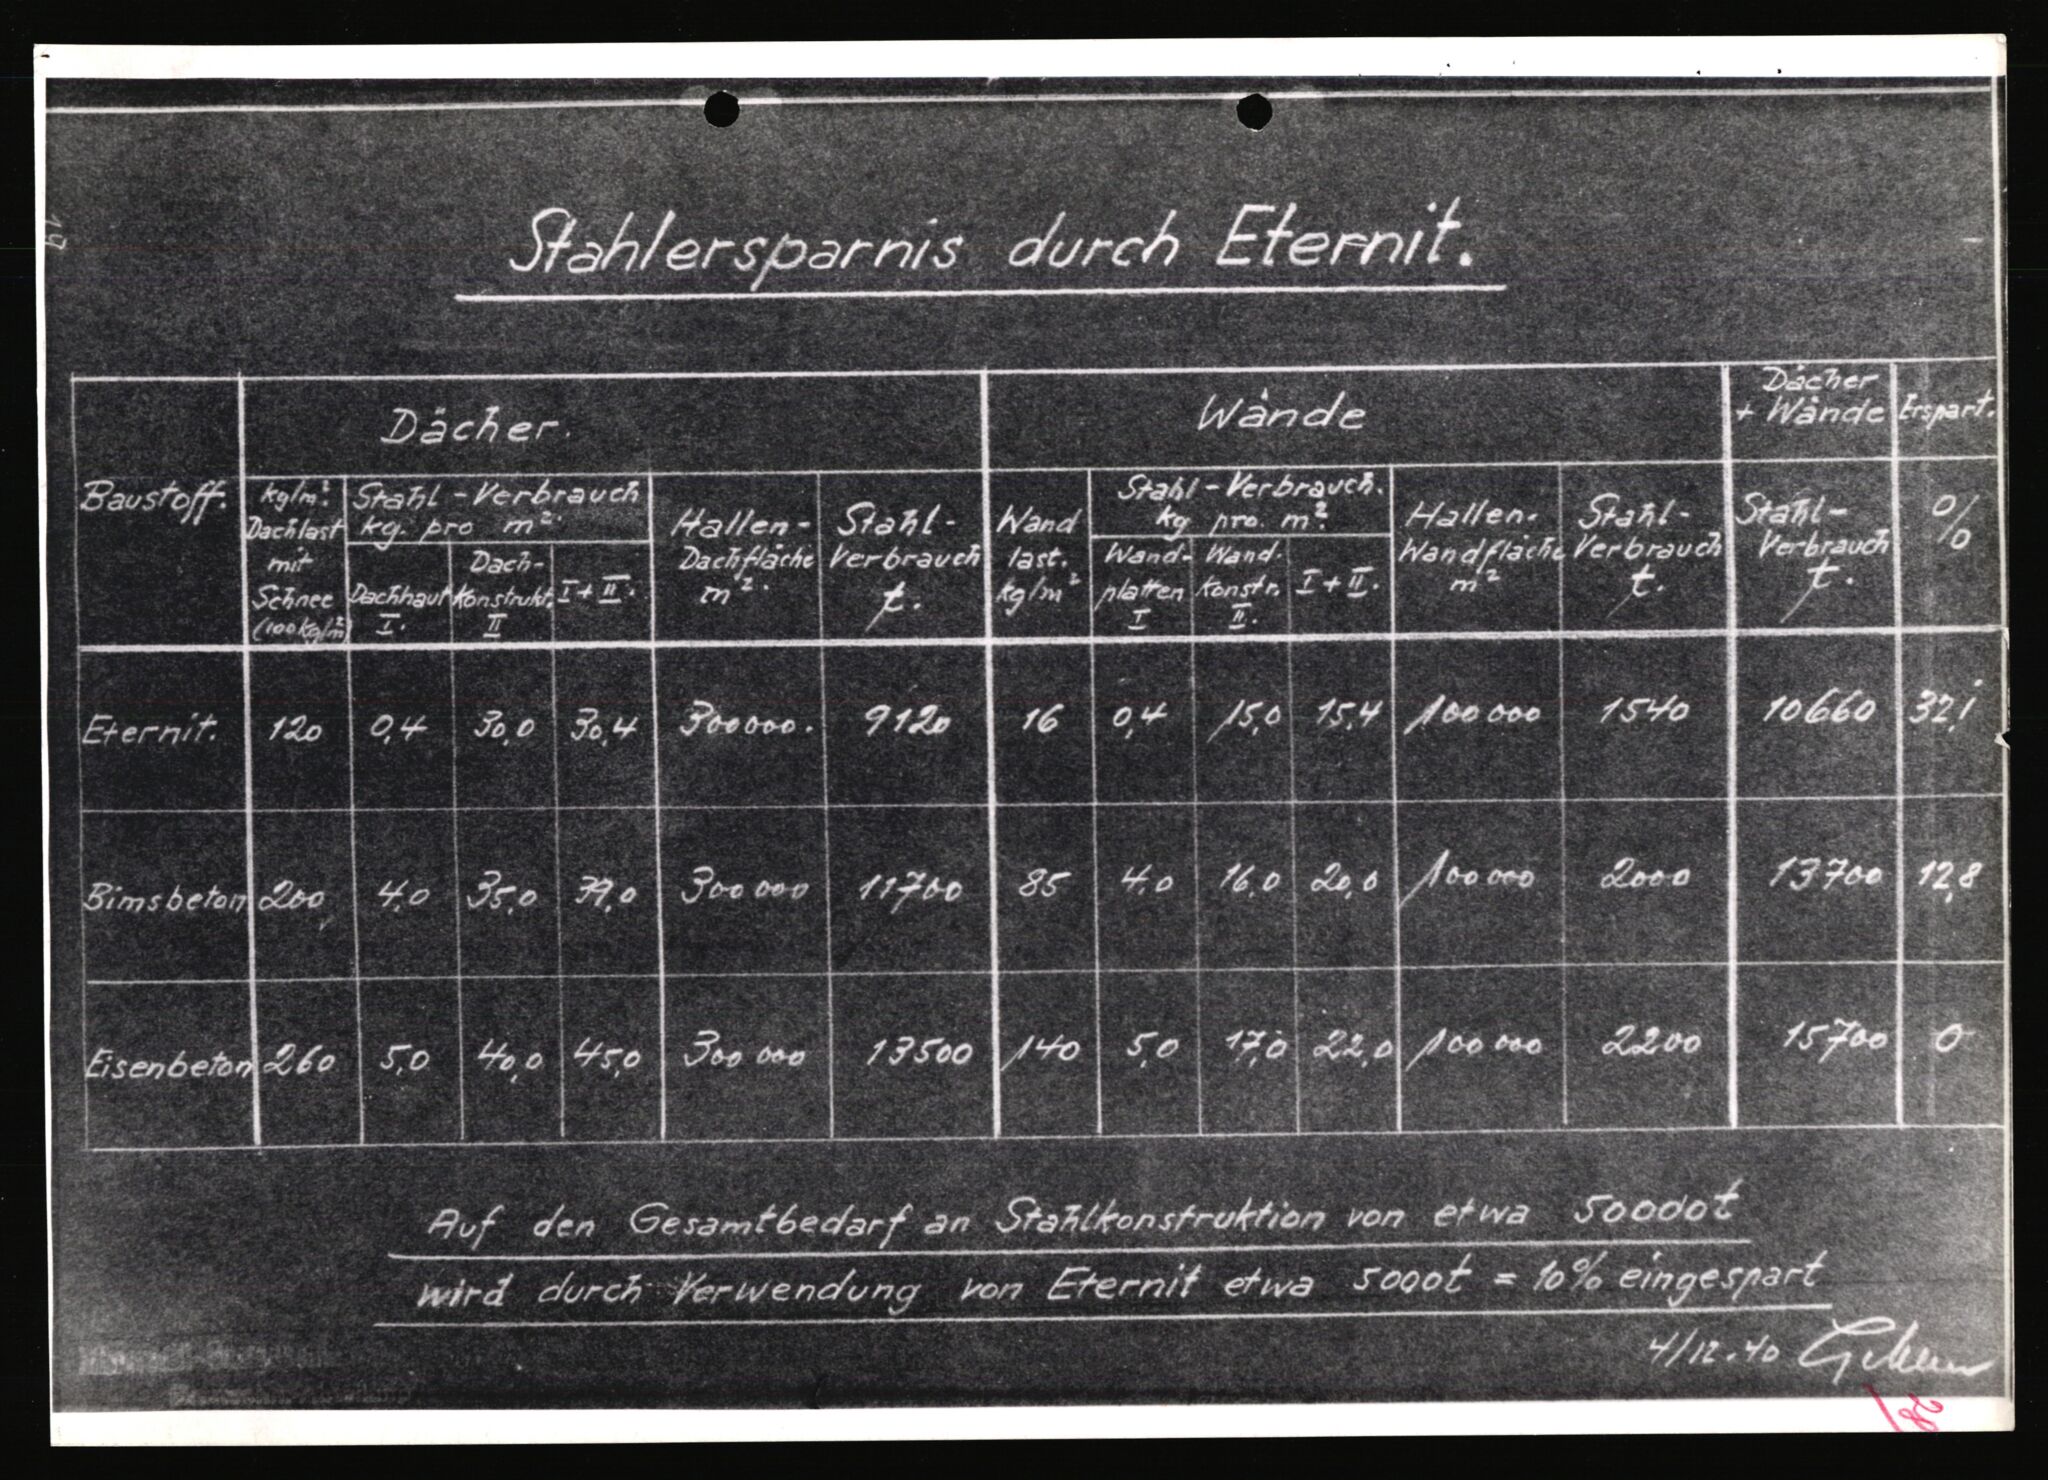 Stahlersparnis durch Eternit.
Baustoff. Dächer. Wände Dächer + Wände Erspart.
kg/m² Dachlast mit Schnee (100kg/m²)
Stahl-Verbrauch kg. pro m².
Dachhaut I.
Dach-Konstrukt. II
I + II.
Hallen-Dachfläche m².
Stahl-Verbrauch t.
Wand last. kg/m²
Stahl-Verbrauch. kg pro. m².
Wand-platten I
Wand. Konstr. II.
I + II.
Hallen-Wandfläche m²
Stahl-Verbrauch t.
Stahl-Verbrauch t.
%
Eternit. 120 0,4 30,0 30,4 300000. 9120 16 0,4 15,0 15,4 100000 1540 10660 32,1
Bimsbeton 200 4,0 35,0 39,0 300000 11700 85 4,0 16,0 20,0 100000 2000 13700 12,8
Eisenbeton 260 5,0 40,0 45,0 300000 13500 140 5,0 17,0 22,0 100000 2200 15700 0
Auf den Gesamtbedarf an Stahlkonstruktion von etwa 50000t
wird durch Verwendung von Eternit etwa 5000t = 10% eingespart
4/12.40